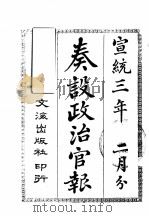 宣統三年 二月分
奏設政治官報
文海出版社印行